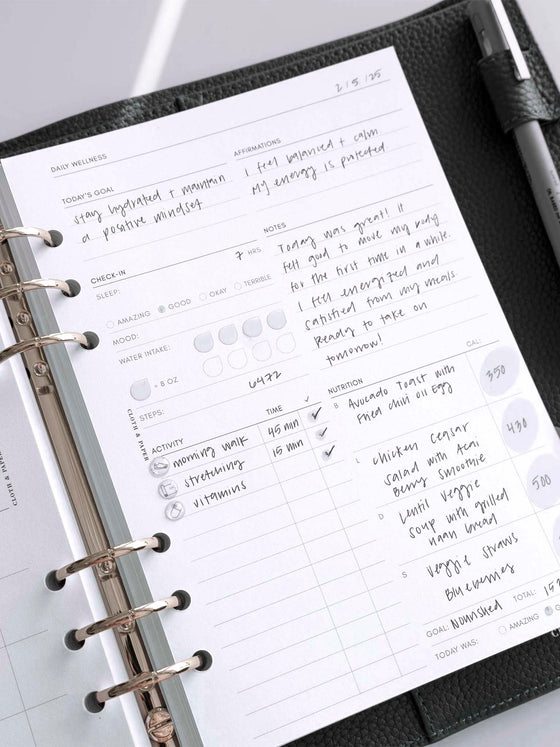 2/5/25
DAILY WELLNESS
TODAY'S GOAL
stay hydrated + maintain
a positive mindset
AFFIRMATIONS
I feel balanced + calm
My energy is protected
CHECK-IN
SLEEP:
7 HRS
AMAZING GOOD OKAY TERRIBLE
MOOD:
WATER INTAKE:
= 8 OZ
STEPS:
6472
NOTES
Today was great! It
felt good to move my body
for the first time in a while.
I feel energized and
satisfied from my meals.
Ready to take on
tomorrow!
CLOTH & PAPER
ACTIVITY TIME ✓
morning walk 45 min ✓
stretching 15 min ✓
vitamins ✓
NUTRITION CAL:
B Avocado Toast with
Fried chili oil Egg
350
L chicken Ceasar
salad with Acai
Berry Smoothie
430
D Lentil Veggie
soup with grilled
naan bread
500
S Veggie straws
Blueberries
GOAL: Nourished TOTAL:
TODAY WAS: AMAZING
CLOTH & PAPER